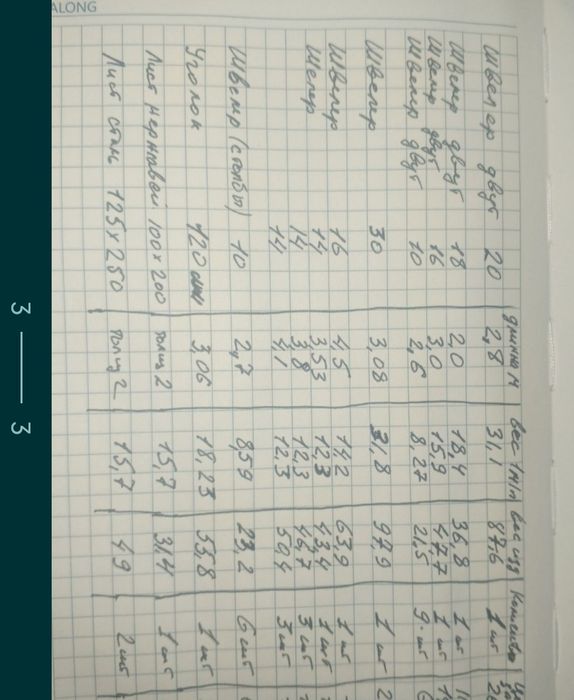 ALONG
длинна м вес 1м/п вес изд Количество
Швелер двут 20 2,8 31,1 87,6 1 шт
Швелер двут 18 20 18,4 36,8 1 шт
Швелер двут 16 3,0 15,9 47,7 1 шт
Швелер двут 10 2,6 8,27 21,5 9 шт
Швелер 30 3,08 31,8 97,9 1 шт 2
Швелер 16 4,5 14,2 63,9 1 шт
Швелер 14 3,53 12,3 43,4 1 шт
14 3,8 12,3 46,7 3 шт
14 4,1 12,3 50,4 3 шт
Швелер (столбы) 10 2,7 8,59 23,2 6 шт
Уголок 120 мм 3,06 18,23 55,8 1 шт
Лист нержавей 100х200 толщ 2 15,7 31,4 1 шт
Лист сталь 125х250 толщ 2 15,7 49 2 шт
3 — 3